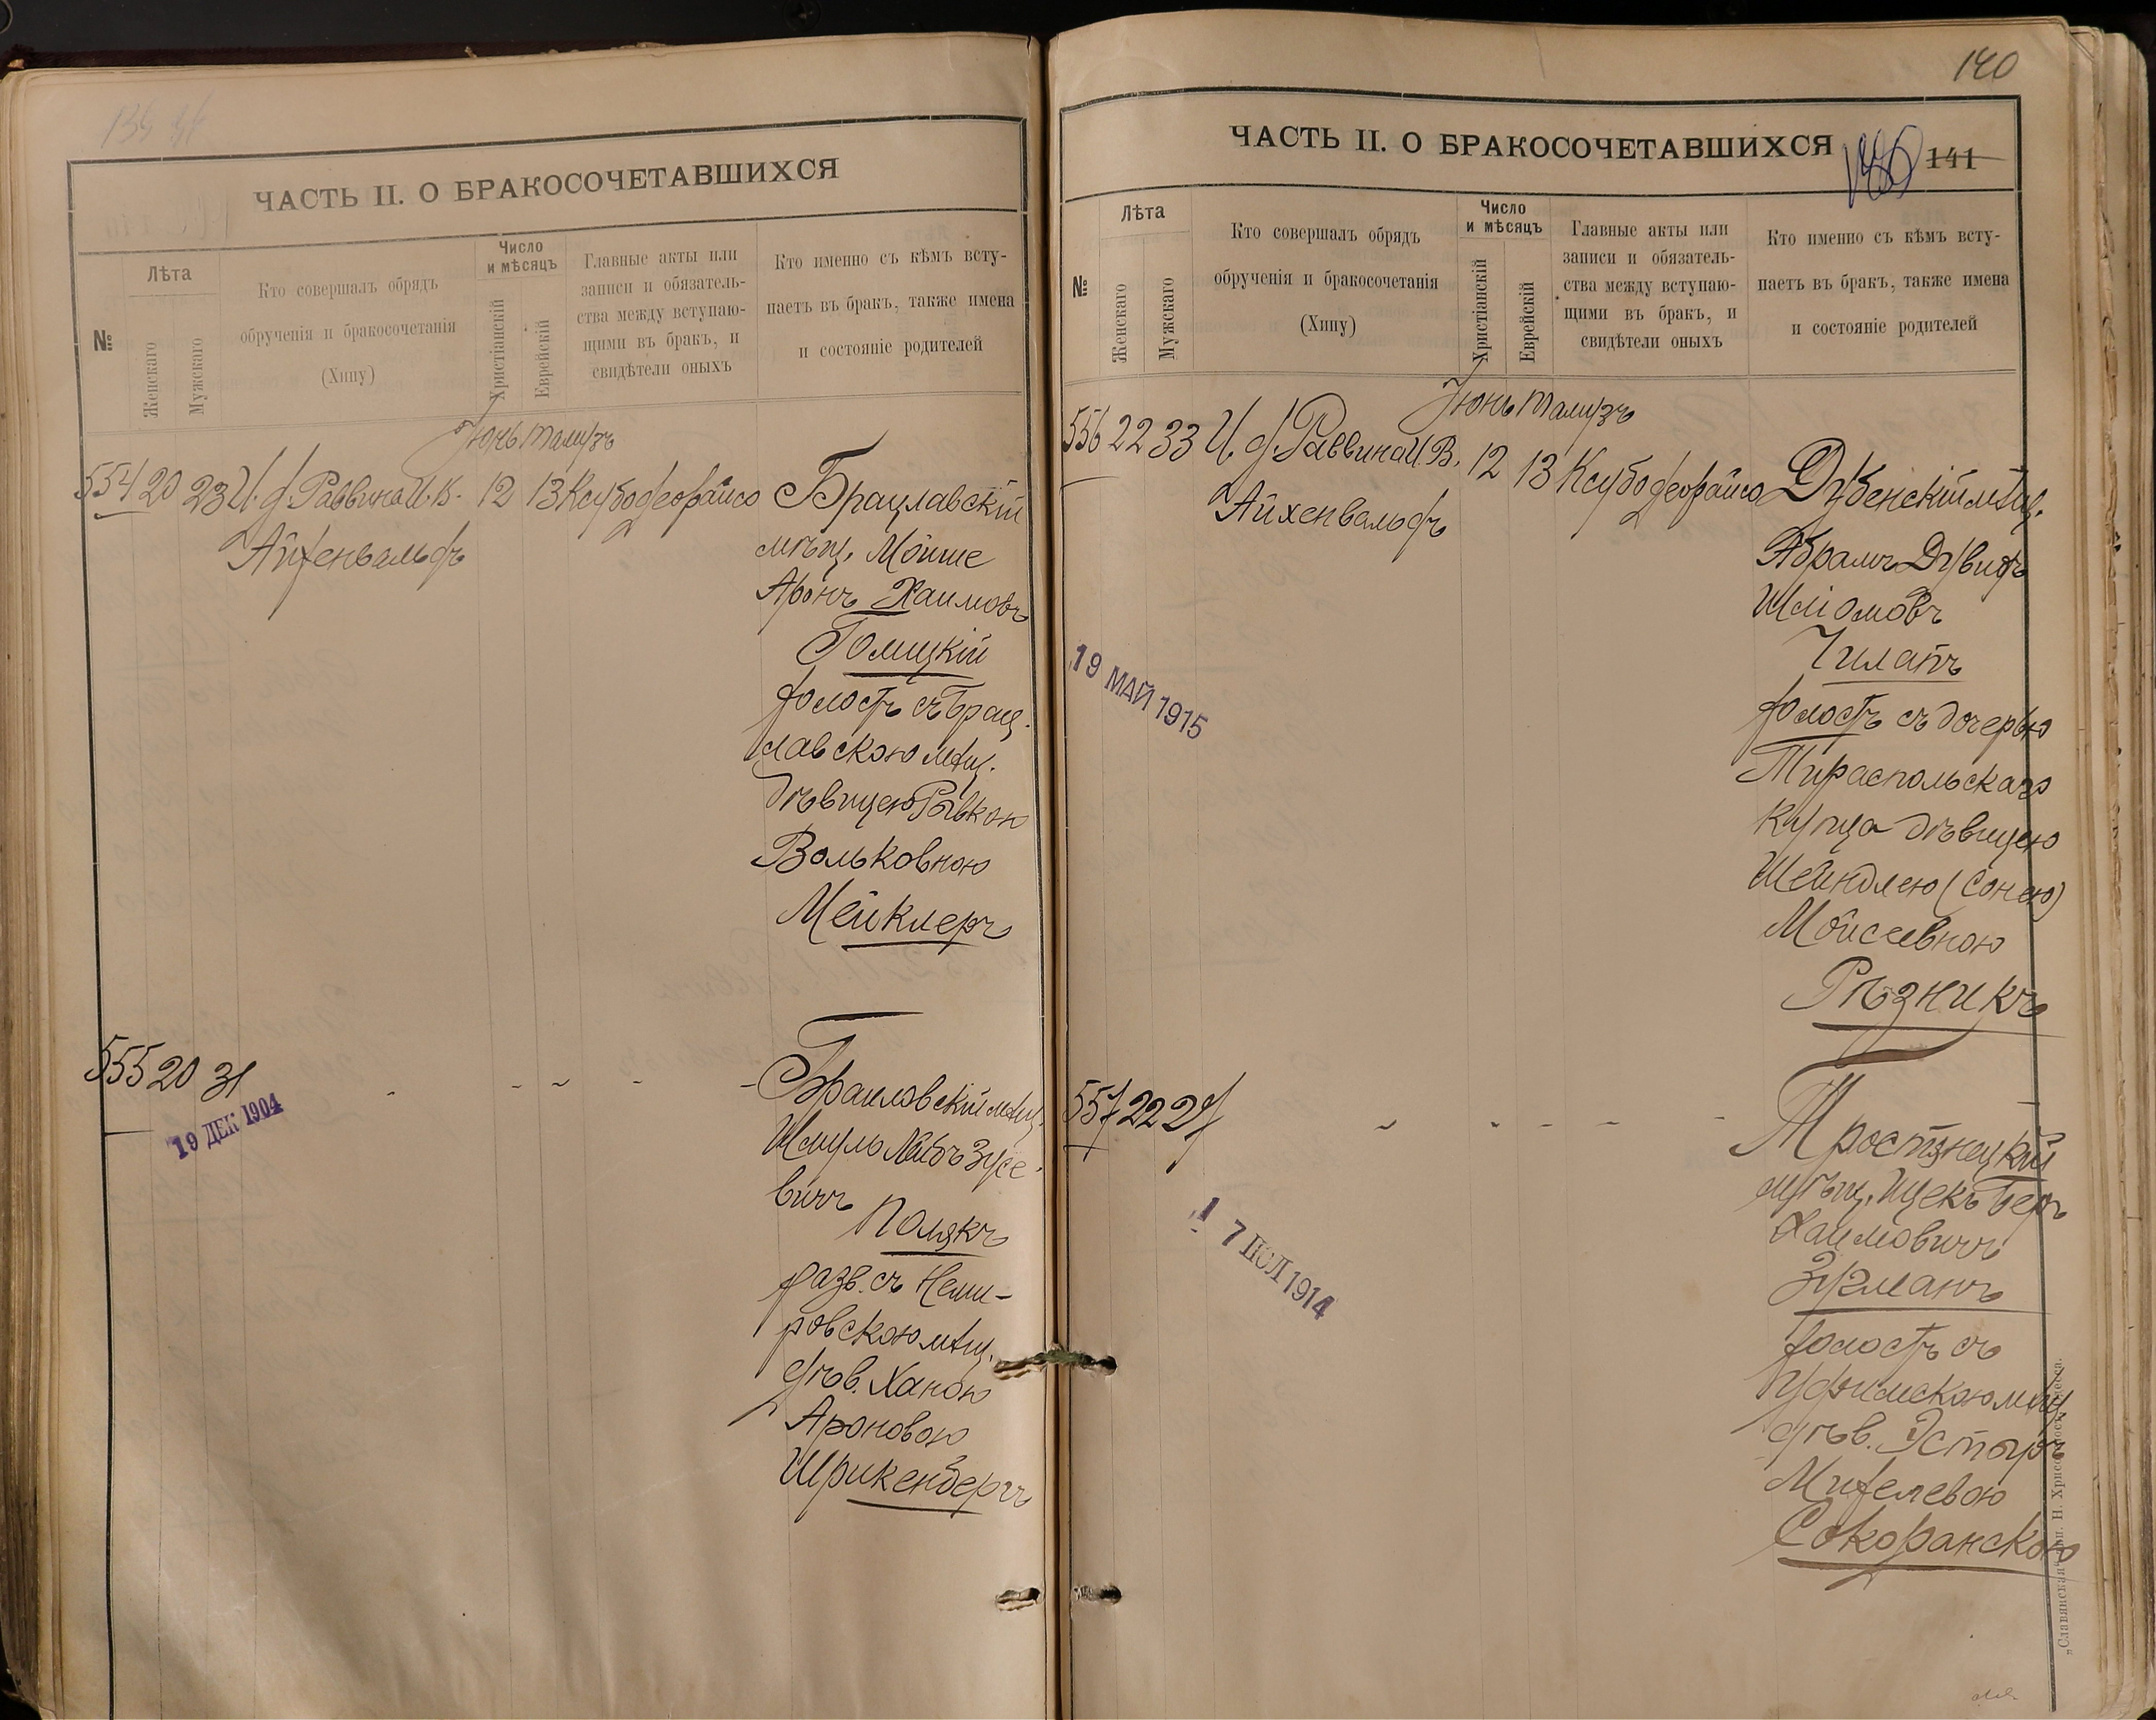 ЧАСТЬ II. О БРАКОСОЧЕТАВШИХСЯ
№
Лѣта
Женскаго
Мужскаго
Кто совершалъ обрядъ
обрученія и бракосочетанія
(Хипу)
Число
и мѣсяцъ
Христіанскій
Еврейскій
Главные акты или
записи и обязатель-
ства между вступаю-
щими въ бракъ, и
свидѣтели оныхъ
Кто именно съ кѣмъ всту-
паетъ въ бракъ, также имена
и состояніе родителей
Іюнь Тамузъ
554 20 23 И. д. Раввина И. В. 12 13 Ксубо деорайсо Брацлавскій
Айхенвальдъ
мѣщ. Мойше
Аронъ Хаимовъ
Голицкій
холостъ съ Брац-
лавскою мѣщ.
дѣвицею Ривкою
Вольковною
Мейклеръ
555 20 31 - - - - - Браиловскій мѣщ.
19 ДЕК 1904
Шмуль Лейбъ Зусе-
вичъ
Полякъ
разв. съ Неми-
ровскою мѣщ.
дѣв. Ханою
Ароновою
Шрикенбергъ
140
ЧАСТЬ II. О БРАКОСОЧЕТАВШИХСЯ
141
№
Лѣта
Женскаго
Мужскаго
Кто совершалъ обрядъ
обрученія и бракосочетанія
(Хипу)
Число
и мѣсяцъ
Христіанскій
Еврейскій
Главные акты или
записи и обязатель-
ства между вступаю-
щими въ бракъ, и
свидѣтели оныхъ
Кто именно съ кѣмъ всту-
паетъ въ бракъ, также имена
и состояніе родителей
Іюнь Тамузъ
556 22 33 И. д. Раввина И. В. 12 13 Ксубо деорайсо Дубенскій мѣщ.
Айхенвальдъ
Абрамъ Дувидъ
Шліомовъ
Чилатъ
19 МАЙ 1915
холостъ съ дочерью
Тираспольскаго
Купца дѣвицею
Шейндлею (Сонею)
Мойсеевною
Рѣзникъ
557 22 27 - - - - - Тростянецкій
мѣщ. Ицекъ Беръ
Хаимовичъ
Зугманъ
1 7 ІЮЛ 1914
холостъ съ
мѣщ
дѣв. Эстеръ
Михелевою
Сокоранскою
„Славянская“ тип. Н. Хрисогелосъ, Одесса.